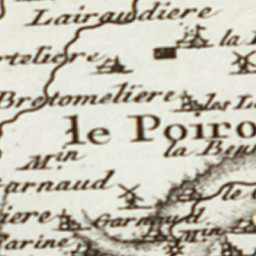 Lairaudiere
la
rteliere
Bretomeliere
les
le Poiro
Min
la
arnaud
le
iere
Garnaud
Min
arine